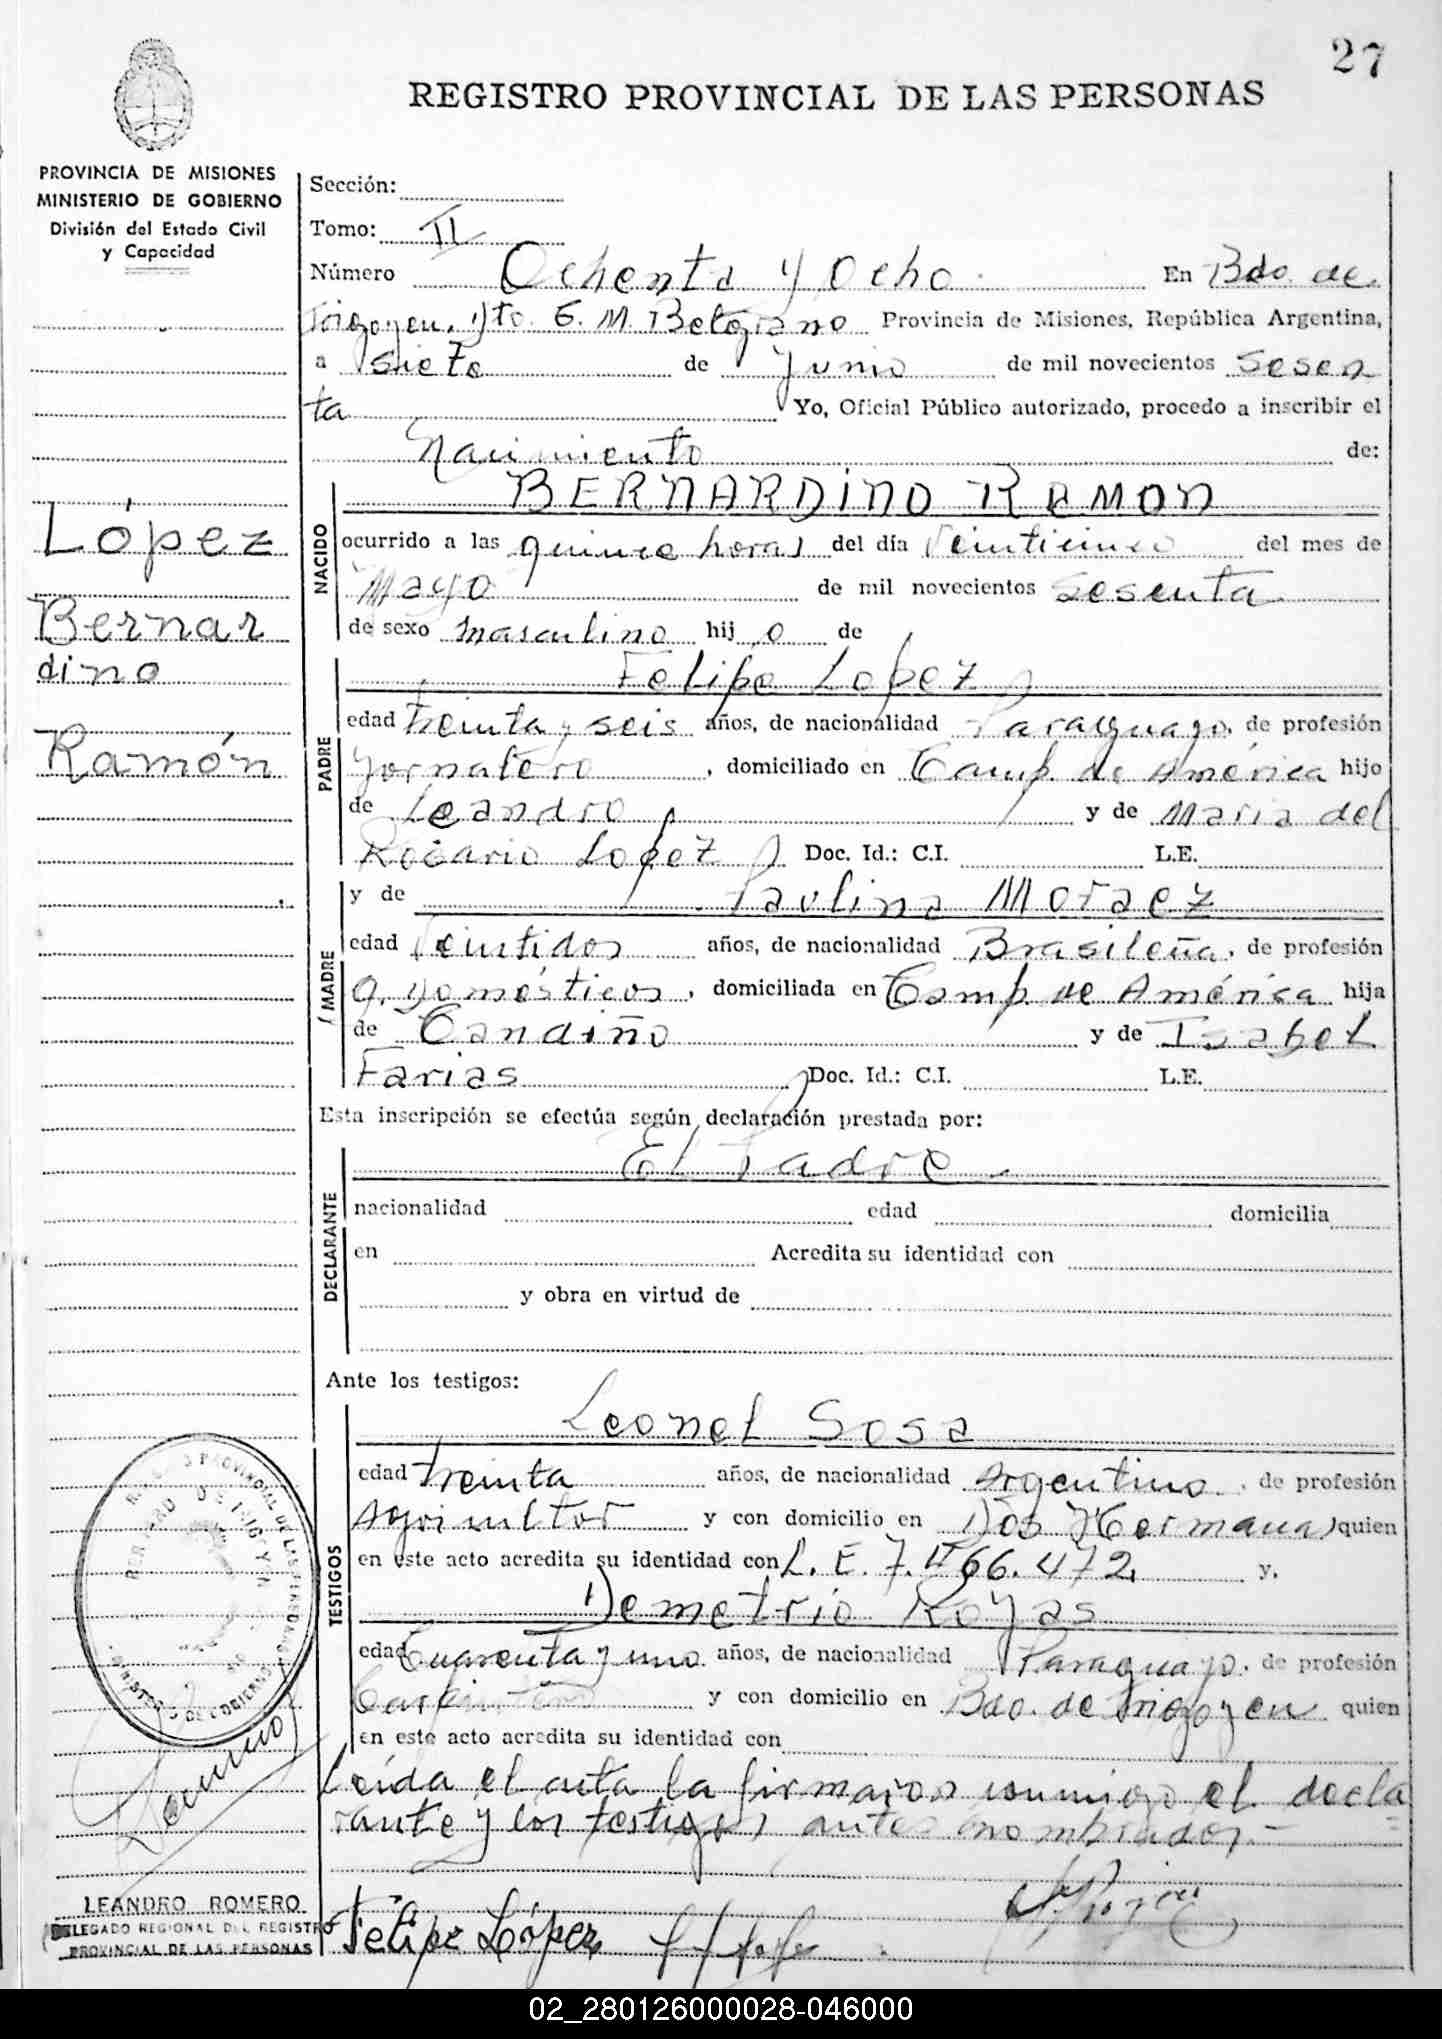 27
REGISTRO PROVINCIAL DE LAS PERSONAS
PROVINCIA DE MISIONES
MINISTERIO DE GOBIERNO
División del Estado Civil
y Capacidad
López
Bernar
dino
Ramón
Sección:
Tomo: II
Número Ochenta y Ocho En Bdo. de
Irigoyen, Dto. G. M. Belgrano Provincia de Misiones, República Argentina,
a siete de Junio de mil novecientos sesen
ta Yo, Oficial Público autorizado, procedo a inscribir el
Nacimiento de:
NACIDO
BERNARDINO RAMON
ocurrido a las quince horas del día Veinticinco del mes de
Mayo de mil novecientos sesenta
de sexo masculino hij o de
PADRE
Felipe Lopez
edad treinta y seis años, de nacionalidad Paraguayo, de profesión
Jornalero, domiciliado en Camp. de América hijo
de Leandro y de Maria del
Rosario Lopez Doc. Id.: C.I. L.E.
MADRE
y de Paulina Moraez
edad Veintidos años, de nacionalidad Brasileña, de profesión
Q. Domésticos, domiciliada en Camp. de América hija
de Candiño y de Isabel
Farias Doc. Id.: C.I. L.E.
Esta inscripción se efectúa según declaración prestada por:
DECLARANTE
El Padre
nacionalidad edad domicilia
en Acredita su identidad con
y obra en virtud de
Ante los testigos:
TESTIGOS
Leonel Sosa
edad treinta años, de nacionalidad Argentino, de profesión
Agricultor y con domicilio en Dos Hermanas quien
en este acto acredita su identidad con L. E. 7. 466.472, y,
Demetrio Rojas
edad Cuarenta y uno años, de nacionalidad Paraguayo, de profesión
Carpintero y con domicilio en Bdo. de Irigoyen quien
en este acto acredita su identidad con
Leída el acta la firmaron conmigo el decla
rante y los testigos antes nombrados.-
Felipe López
REGISTRO PROVINCIAL DE LAS PERSONAS
BERNARDO DE IRIGOYEN
MINISTERIO DE GOBIERNO
LEANDRO ROMERO
DELEGADO REGIONAL DEL REGISTRO
PROVINCIAL DE LAS PERSONAS
02_280126000028-046000